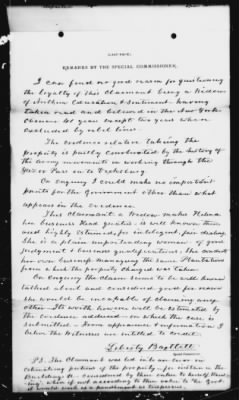 REMARKS BY THE SPECIAL COMMISSIONER.
I can found no good reason for questioning
the loyalty of this Claimant being a Widow
of Northern Education & Sentiment having
taken read and believed in the New York
years except two years when
excluded by rebel lines.
The evidence relative taking the
property is partly corroborated by the history of
the army movements in working through the
Yazoo Pass on to Vicksburg.
On enquiry I could make no important
points for the Government other than what
appears in the evidence.
This Claimant a Widow, makes Helena
her business Head quarters: is well known there
and highly esteemed for intelligent, fair dealing
She is a plain unpretending woman of good
judgment & business qualifications. She conducts
her own business managing the same Plantations
from which the property charged was taken.
On enquiry the Claim seems to be well known
talked about and considered good for reason
she would be incapable of claiming any
other. Its worth however will be estimated by
the evidence adduced on which the case is
submitted. From appearance & information I
believe the Witnesses are intitled to credit.
Liberty Bartlett
Special Commissioner
P.S. The Claimant was led into an error in
estimating portions of the property for instance the
Buildings &c. considered by their value to herself stand-
ing when if not according to their value to the Govt.